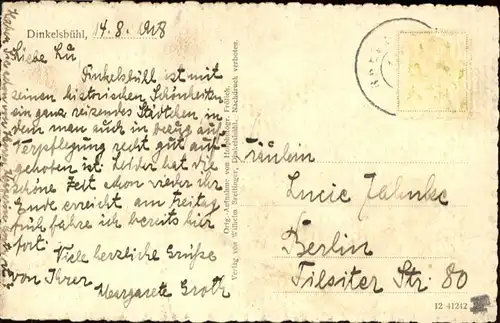 Dinkelsbühl, 14.8.1928
Liebe Lu
Dinkelsbühl ist mit
seinen historischen Schönheiten
ein ganz reizendes Städtchen, in
dem man auch in bezug auf
Verpflegung recht gut auf-
gehoben ist. Leider hat die
schöne Zeit schon wieder ihr
Ende erreicht, am Freitag
früh fahre ich bereits hier
fort. Viele herzliche Grüße
von Ihrer
Margarete Groth
Orig.-Aufnahme von Hofphotogr. Frölich.
Verlag von Wilhelm Breitinger, Dinkelsbühl. Nachdruck verboten.
Fräulein
Lucie Jahnke
Berlin
Tilsiter Str. 80
12 41212